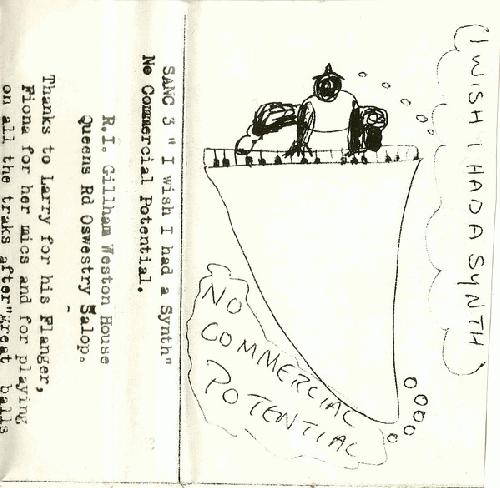 (I WISH I HAD A SYNTH)
NO
COMMERCIAL
POTENTIAL
SANC 3 " I wish I had a Synth"
No Commercial Potential.
R.I. Gillham Weston House
Queens Rd Oswestry Salop.
Thanks to Larry for his Flanger,
Fiona for her mics and for playing
on all the traks after"Great balls